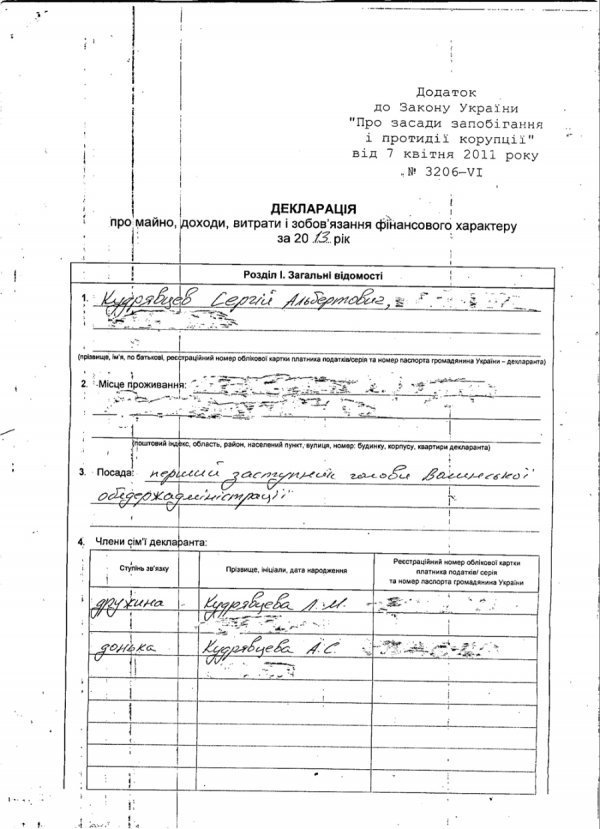 Додаток
до Закону України
"Про засади запобігання
і протидії корупції"
від 7 квітня 2011 року
№ 3206-VI
ДЕКЛАРАЦІЯ
про майно, доходи, витрати і зобов'язання фінансового характеру
за 2013 рік
Розділ І. Загальні відомості
1. Кудрявцев Сергій Альбертович,
(прізвище, ім'я, по батькові, реєстраційний номер облікової картки платника податків/серія та номер паспорта громадянина України – декларанта)
2. Місце проживання:
(поштовий індекс, область, район, населений пункт, вулиця, номер: будинку, корпусу, квартири декларанта)
3. Посада: перший заступник голови Волинської
облдержадміністрації
4. Члени сім'ї декларанта:
Ступінь зв'язку
Прізвище, ініціали, дата народження
Реєстраційний номер облікової картки
платника податків/ серія
та номер паспорта громадянина України
дружина Кудрявцева Л.М.
донька Кудрявцева А.С.